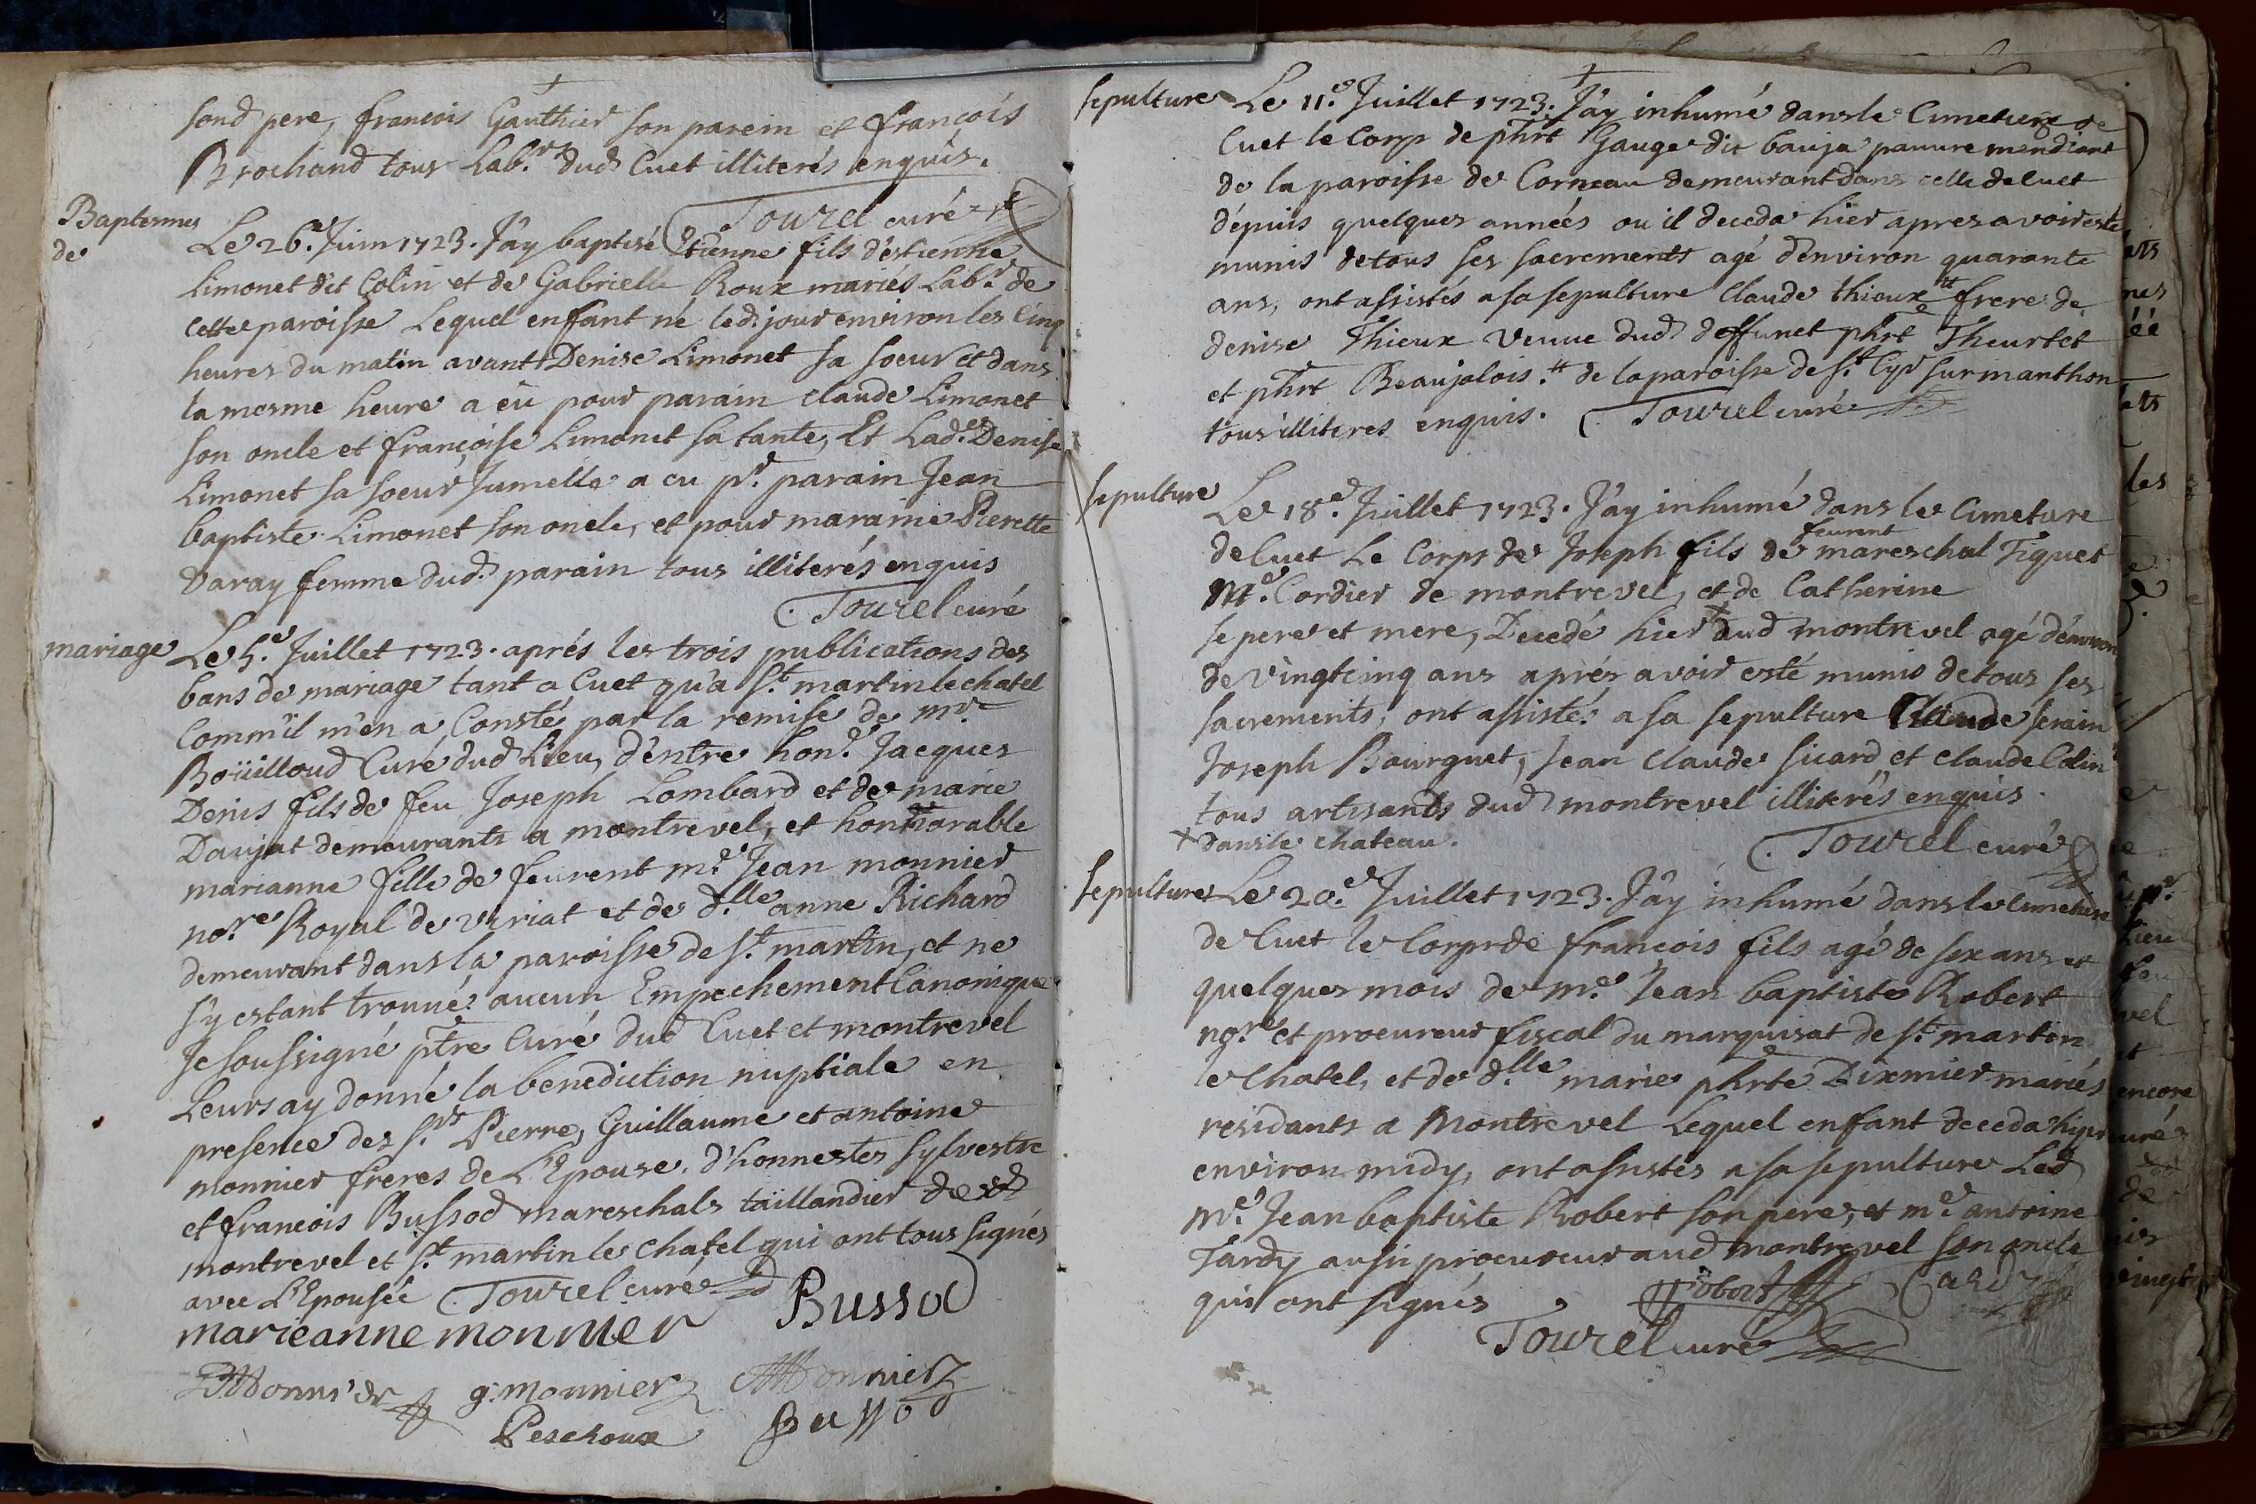 sond pere, francois Gauthier son parein et françois
Brochand tous Lab.rs dud Cuet illiterés enquis.
Tourel curé
Baptesmes
de
Le 26.e Juin 1723. J'ay baptisé Etienne fils d'estienne
Limonet dit Colin et de Gabrielle Roux mariés Lab.r de
cette paroisse Lequel enfant né led. jour environ les Cinq
heures du matin avant Denise Limonet sa soeur et dans
la mesme heure a eü pour parain claude Limonet
son oncle et françoise Limonet sa tante, Et Lad.e Denise
Limonet sa soeur Jumelle a eu p.r parain Jean
baptiste Limonet son oncle, et pour maraine Pierette
Varay femme dud. parain tous illiterés enquis
Tourel curé
mariage
Le 5.e Juillet 1723. aprés les trois publications des
bans de mariage tant a Cuet qu'a S.t martin le chatel
Comm'il m'en a Consté par la remise de m.r
Boüilloud Curé dud Lieu, d'entre hon.e Jacques
Denis fils de feu Joseph Lombard et de marie
Daujat demeurants a montrevel, et honnorable
marianne fille de feurent m.e Jean monnier
no.re Royal de viriat et de d.lle anne Richard
demeurant dans la paroisse de S.t martin, et ne
s'y estant trouué aucun Empechement Canonique
Je soussigné ptre Curé dud Cuet et montrevel
Leurs ay donné la benediction nuptiale en
presence des S.rs Pierre, Guillaume et antoine
monnier freres de L'Epouse, d'honnestes sylvestre
et francois Bussod mareschals taillandier de
montrevel et S.t martin le chatel qui ont tous signés
avec L'Epousée Tourel curé
Bussod
marieanne monnier
P Monnier g. monnier A Monnier
Peschoux Bussod
sepulture
Le 11.e Juillet 1723. J'ay inhumé dans le Cimetiere de
Cuet le Corps de phrt Gauge dit bauja pauure mendiant
de la paroisse de Corneau demeurant dans celle de Cuet
dépuis quelques années ou il deceda hier apres avoir esté
munis de tous ses sacrements agé d'environ quarante
ans, ont assistés a sa sepulture Claude thieux frere de
denise Thieux veuue dud deffunct phrt Theurtet
et phrt Beaujolois de la paroisse de S.t Cyr sur manthon
tous illiteres enquis. Tourel curé
sepulture
Le 18.e Juillet 1723. J'ay inhumé dans le Cimeture
de Cuet Le Corps de Joseph fils de feurent mareschal Figuet
M.e Cordier de montrevel, et de Catherine
se pere et mere, Decedé hier aud montrevel agé d'environ
de vingtcinq ans aprés avoir esté munis de tous ses
sacrements, ont assisté a sa sepulture Claude serain
Joseph Bourguet, Jean Claude sicard et claude Colin
tous artisants dud montrevel illiterés enquis.
+ dans le chateau.
Tourel curé
sepulture
Le 20.e Juillet 1723. J'ay inhumé dans le Cimetiere
de Cuet le Corps de françois fils agé de six ans et
quelques mois de m.e Jean baptiste Robert
no.re et procureur fiscal du marquisat de S.t martin
le Chatel, et de d.lle marie phrte Dixmier mariés
residants a Montrevel Lequel enfant deceda hier
environ midy, ont assistés a sa sepulture Led
M.e Jean baptiste Robert son pere, et m.e antoine
Tardy aussi procureur aud montrevel son oncle
qui ont signés Robert Tardy
Tourel curé